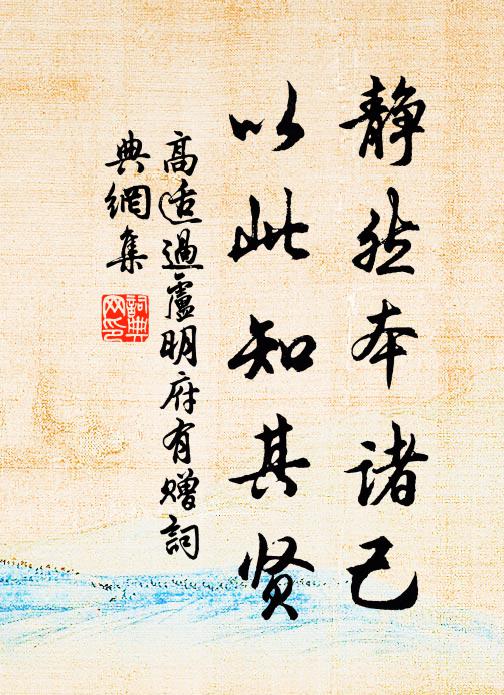 静然本诸己
以此知其贤
高适過盧明府有赠詞
典網集
詞典网印